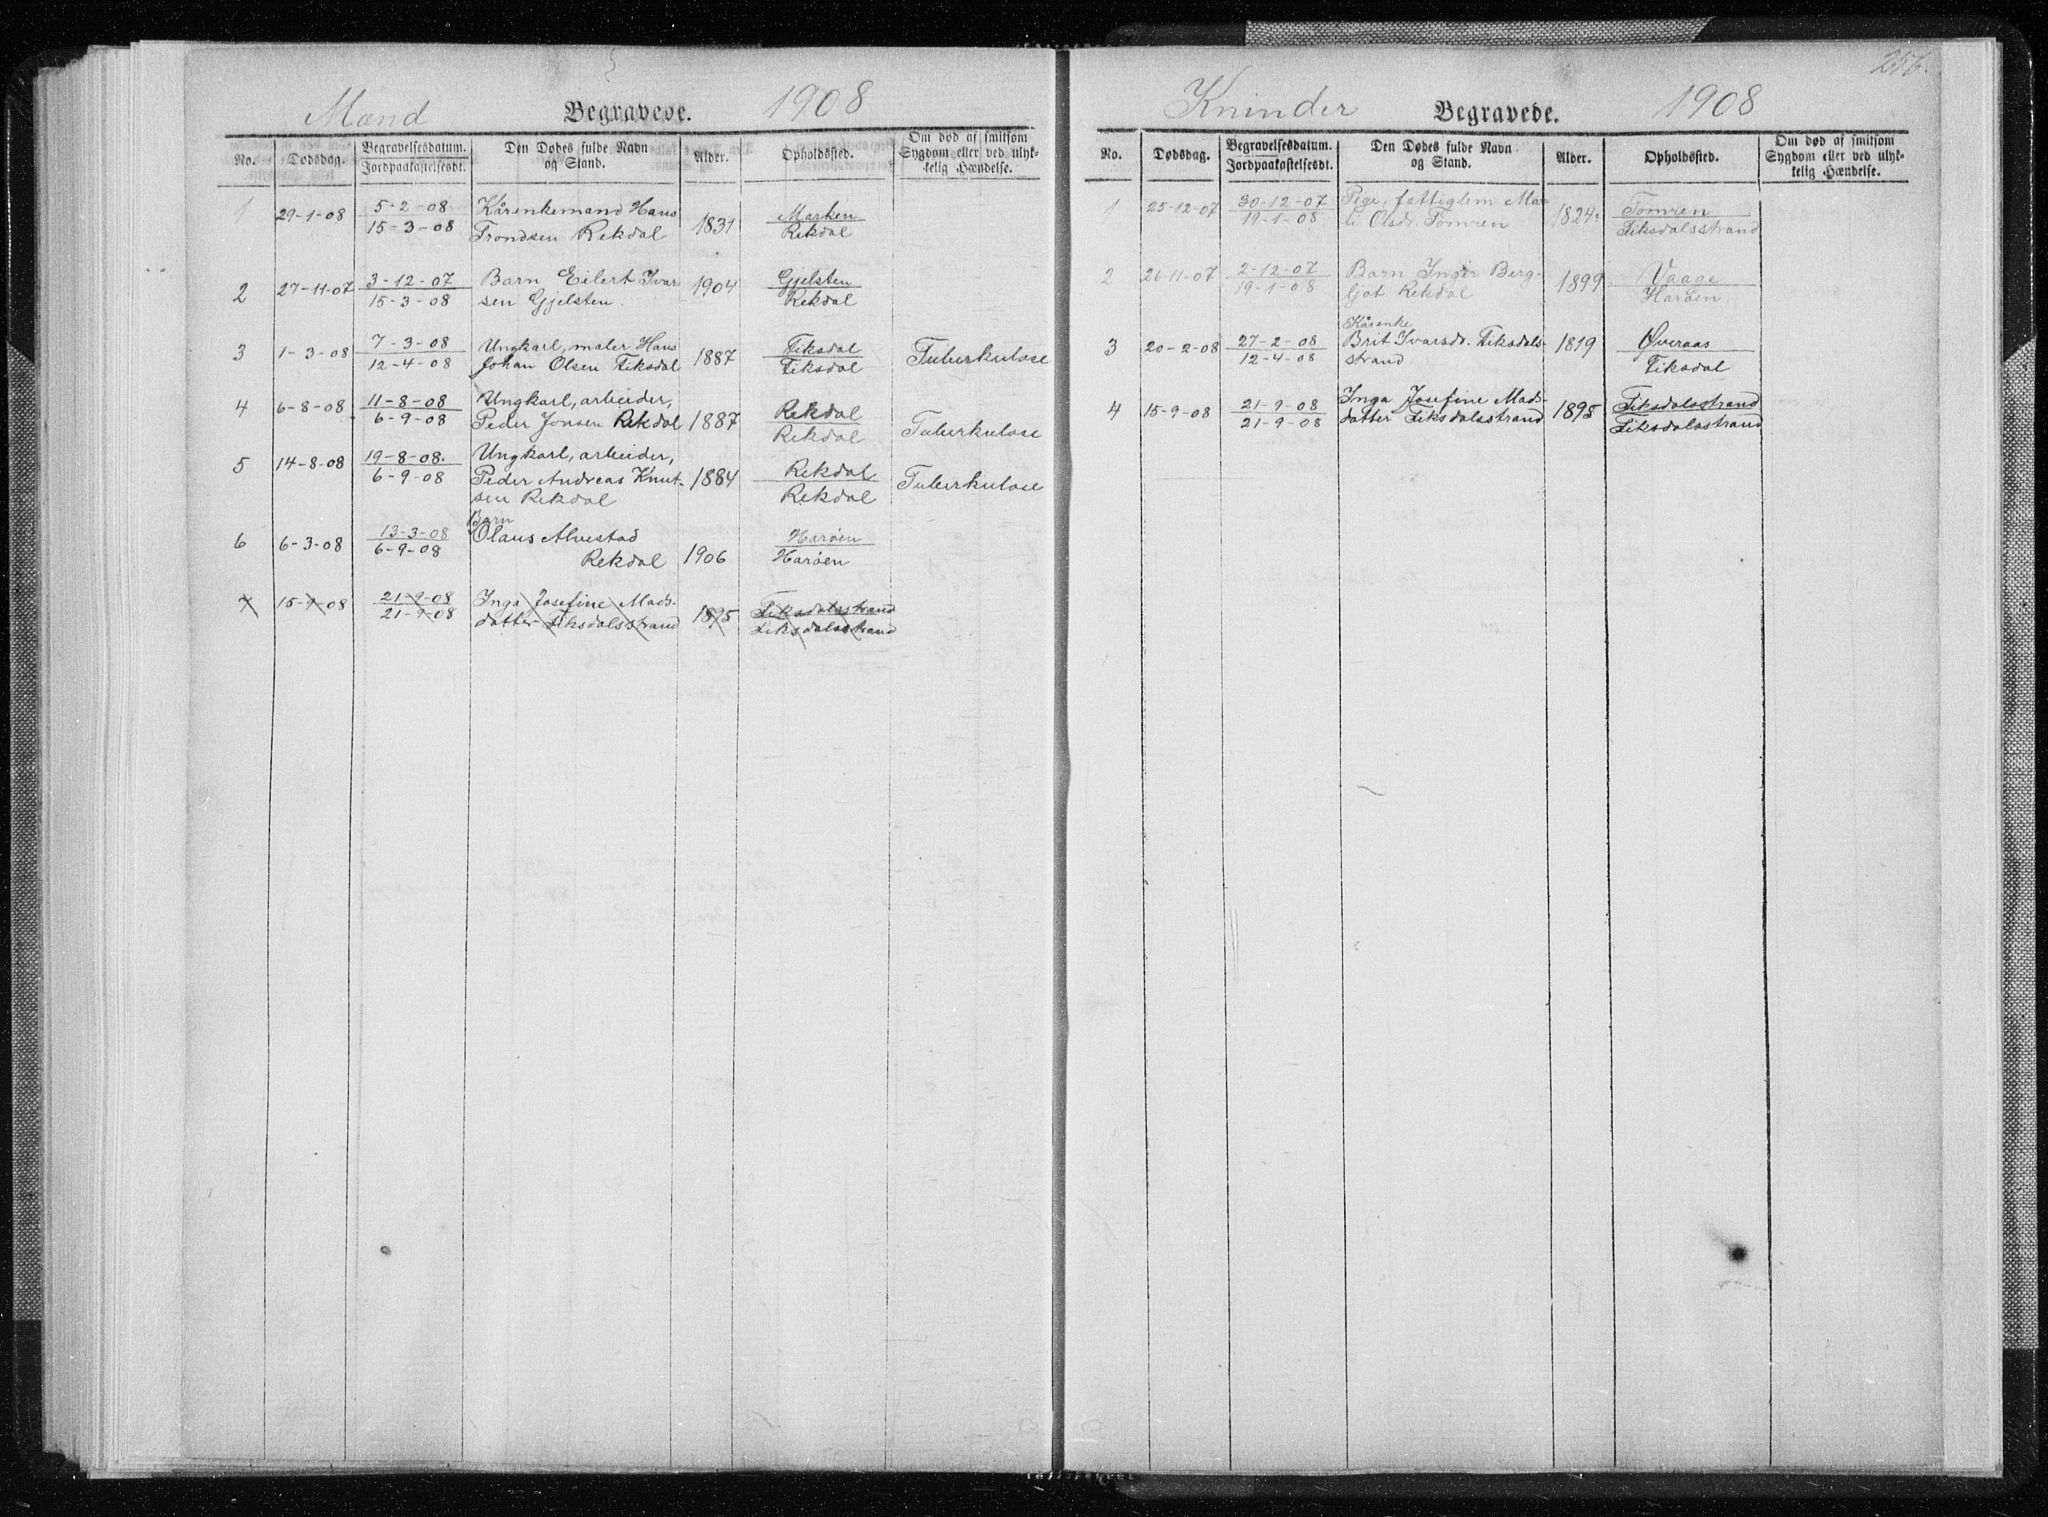 Mænd Begravede. 1908
No. Dødsdag. Begravelsesdatum. Jordpaakastelsesdt. Den Dødes fulde Navn og Stand. Alder. Opholdssted. Om død af smitsom Sygdom eller ved ulykkelig Hændelse.
1 29-1-08 5-2-08 Kårenkemand Hans 1831 Marken
15-3-08 Trondsen Rekdal Rekdal
2 27-11-07 3-12-07 Barn Eilert Ivar- 1904 Gjelsten
15-3-08 sen Gjelsten. Rekdal
3 1-3-08 7-3-08 Ungkarl, maler Hans 1887 Fiksdal Tuberkulose
12-4-08 Johan Olsen Fiksdal Fiksdal
4 6-8-08 11-8-08 Ungkarl, arbeider, 1887 Rekdal Tuberkulose
6-9-08 Peder Jonsen Rekdal Rekdal
5 14-8-08 19-8-08. Ungkarl, arbeider, 1884 Rekdal Tuberkulose
6-9-08 Peder Andreas Knut- Rekdal
sen Rekdal
Barn
6 6-3-08 13-3-08 Olaus Alvestad 1906 Harøen
6-9-08 Rekdal Harøen
7 15-9-08 21-9-08 Inga Josefine Mads- 1895 Fiksdalsstrand
21-9-08 datter Fiksdalsstrand Fiksdalsstrand
256.
Kvinder Begravede. 1908
No. Dødsdag. Begravelsesdatum. Jordpaakastelsesdt. Den Dødes fulde Navn og Stand. Alder. Opholdssted. Om død af smitsom Sygdom eller ved ulykkelig Hændelse.
1 25-12-07 30-12-07 Pige, fattiglem Ma- 1824. Tomren
19-1-08 li Olsdr. Tomren Fiksdalsstrand
2 26-11-07 2-12-07 Barn Inger Berg- 1899 Vaage
19-1-08 ljot Rekdal Harøen
Kårenke
3 20-2-08 27-2-08 Brit Ivarsdr. Fiksdals- 1819 Øveraas
12-4-08 strand Fiksdal
4 15-9-08 21-9-08 Inga Josefine Mads- 1895 Fiksdalsstrand
21-9-08 datter Fiksdalsstrand Fiksdalsstrand